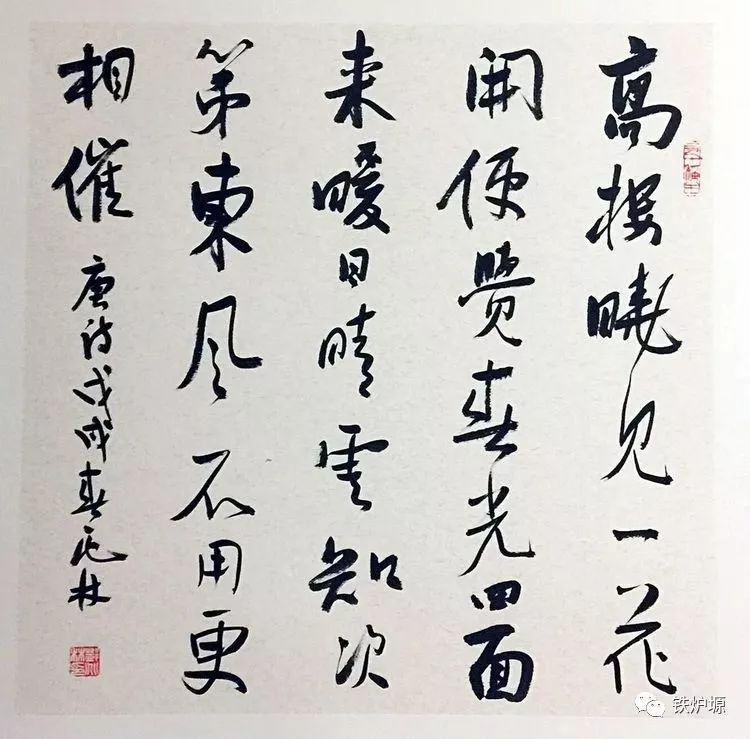 高楼晓见一花
開便覺春光四面
来暖日晴雲知次
第東風不用更
相催
唐诗戊戌春
铁炉塬